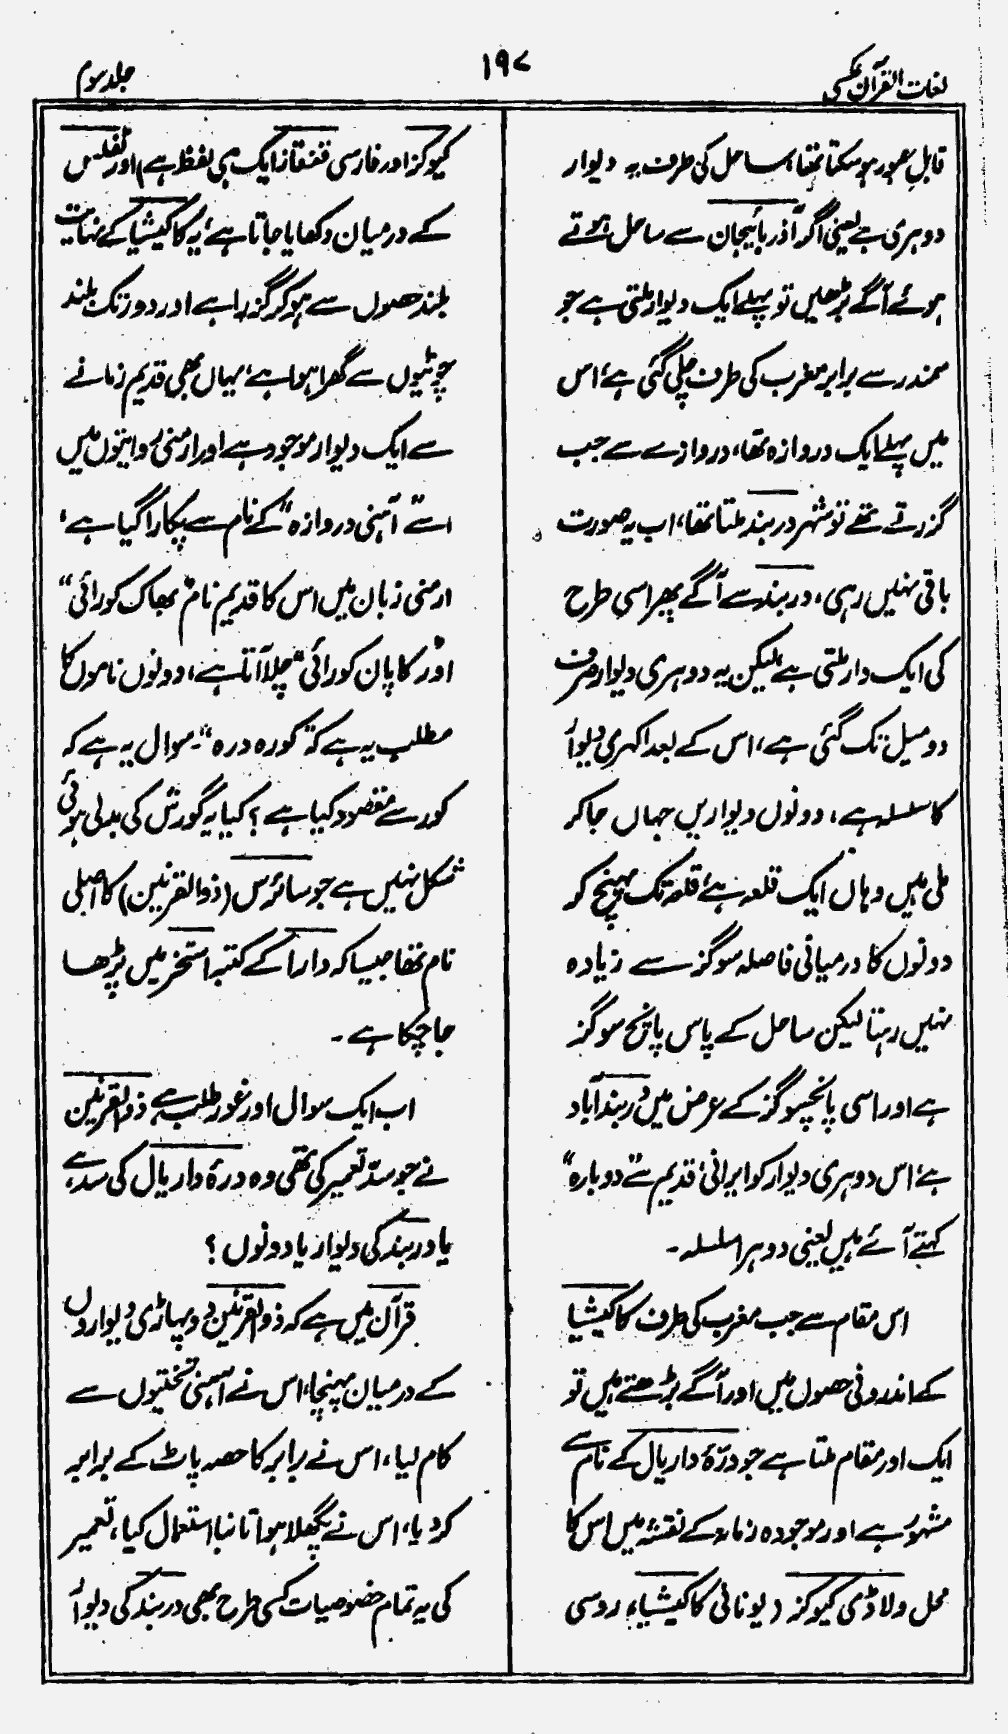 لغات القرآن عکسی
۱۹۷
جلد سوم
قابلِ عبور ہو سکتا تھا، ساحل کی طرف یہ دیوار
دوہری ہے یعنی اگر آذربائیجان سے ساحل ہوتے
ہوئے آگے بڑھیں تو پہلے ایک دیوار ملتی ہے جو
سمندر سے برابر مغرب کی طرف چلی گئی ہے، اس
میں پہلے ایک دروازہ تھا، دروازے سے جب
گزرتے تھے تو شہر دربند ملتا تھا، اب یہ صورت
باقی نہیں رہی، دربند سے آگے پھر اسی طرح
کی ایک دار ملتی ہے، لیکن یہ دوہری دیوار صرف
دو میل تک گئی ہے، اس کے بعد اکہری دیوار
کا سلسلہ ہے، دونوں دیواریں جہاں جا کر
ملی ہیں وہاں ایک قلعہ ہے، قلعہ تک پہنچ کر
دونوں کا درمیانی فاصلہ سو گز سے زیادہ
نہیں رہتا لیکن ساحل کے پاس پانچ سو گز
ہے اور اسی پانچسو گز کے عرض میں دربند آباد
ہے، اس دوہری دیوار کو ایرانی قدیم سے "دوبارہ"
کہتے آئے ہیں یعنی دوہرا سلسلہ۔
اس مقام سے جب مغرب کی طرف کاکیشیا
کے اندرونی حصوں میں اور آگے بڑھتے ہیں تو
ایک اور مقام ملتا ہے جو درۂ داریال کے نام سے
مشہور ہے اور موجودہ زمانہ کے نقشہ میں اس کا
محل ولاڈی کیوکز (یونانی کاکیشیا، روسی
کیوکز اور فارسی قفقاز ایک ہی لفظ ہے) اور ٹفلس
کے درمیان دکھایا جاتا ہے، یہ کاکیشیا کے نہایت
بلند حصوں سے ہو کر گزرا ہے اور دور تک بلند
چوٹیوں سے گھرا ہوا ہے، یہاں بھی قدیم زمانے
سے ایک دیوار موجود ہے اور ارمنی روایتوں میں
اسے "آہنی دروازہ" کے نام سے پکارا گیا ہے،
ارمنی زبان میں اس کا قدیم نام "بھاک کورائی"
اور "کاپان کورائی" چلا آتا ہے، دونوں ناموں کا
مطلب یہ ہے کہ "کورہ درہ"۔ سوال یہ ہے کہ
کور سے مقصود کیا ہے؟ کیا یہ گورش کی بدلی ہوئی
شکل نہیں ہے جو سائرس (ذوالقرنین) کا اصلی
نام تھا جیسا کہ دارا کے کتبہ استخر میں پڑھا
جا چکا ہے۔
اب ایک سوال اور غور طلب ہے ذوالقرنین
نے جو سدّ تعمیر کی تھی وہ درۂ داریال کی سد ہے،
یا دربند کی دیوار یا دونوں؟
قرآن میں ہے کہ ذوالقرنین دو پہاڑی دیواروں
کے درمیان پہنچا، اس نے آہنی تختیوں سے
کام لیا، اس نے برابر کا حصہ پاٹ کے برابر
کر دیا، اس نے پگھلا ہوا تانبا استعمال کیا، تعمیر
کی یہ تمام خصوصیات کسی طرح بھی دربند کی دیوار